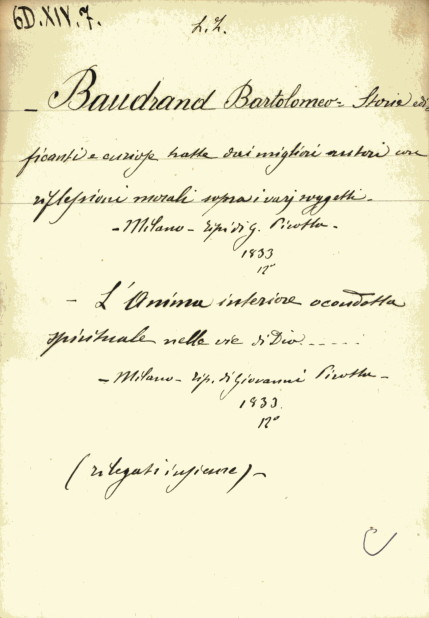 6D.XIV.7.
L.Z.
_ Baudrand Bartolomeo= Storie edi-
ficanti e curiose tratte dai migliori autori con
riflessioni morali sopra i varj soggetti_
- Milano - tipi di G. Pirotta -
1833
12°
- L'Anima interiore o condotta
spirituale nelle vie di Dio.......
- Milano - tip. di Giovanni Pirotta -
1833.
12°
(rilegati insieme)-